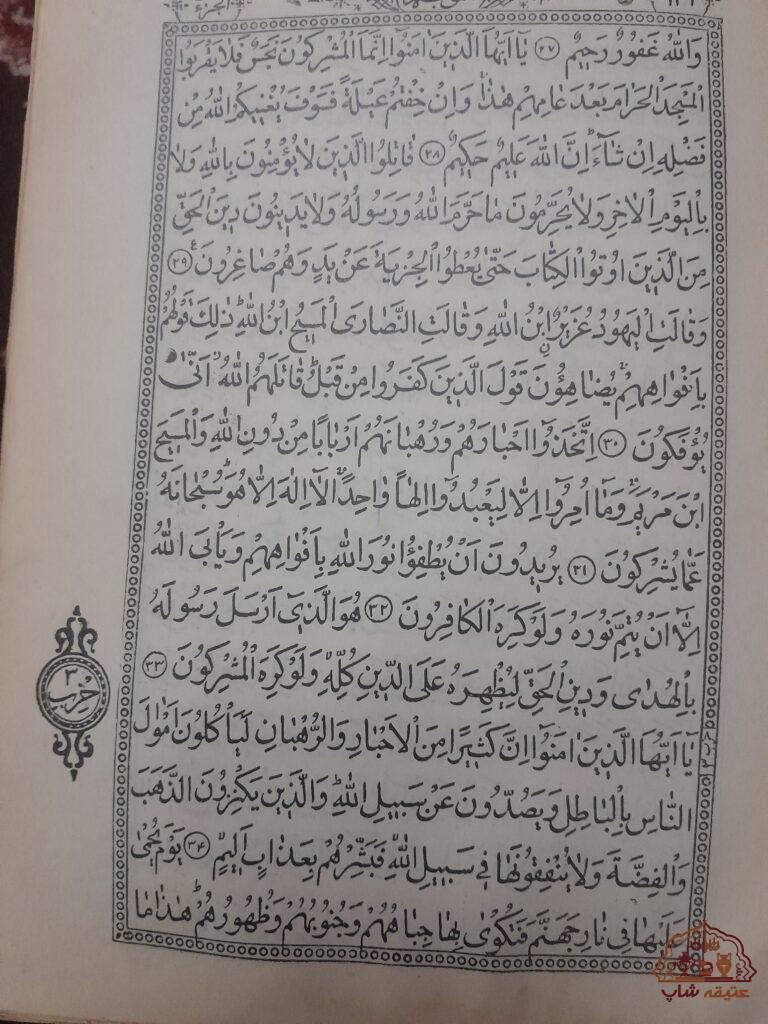 الجزء
وَاللهُ غَفُورٌ رَحِيمٌ ۲۷ يَا اَيُّهَا الَّذِينَ امَنُوا اِنَّمَا الْمُشْرِكُونَ نَجَسٌ فَلَا يَقْرَبُوا
الْمَسْجِدَ الْحَرَامَ بَعْدَ عَامِهِمْ هٰذَا وَاِنْ خِفْتُمْ عَيْلَةً فَسَوْفَ يُغْنِيكُمُ اللهُ مِنْ
فَضْلِهِ اِنْ شَاءَ اِنَّ اللهَ عَلِيمٌ حَكِيمٌ ۲۸ قَاتِلُوا الَّذِينَ لَا يُؤْمِنُونَ بِاللهِ وَلَا
بِالْيَوْمِ الْاٰخِرِ وَلَا يُحَرِّمُونَ مَا حَرَّمَ اللهُ وَرَسُولُهُ وَلَا يَدِينُونَ دِينَ الْحَقِّ
مِنَ الَّذِينَ اُوتُوا الْكِتَابَ حَتّٰى يُعْطُوا الْجِزْيَةَ عَنْ يَدٍ وَهُمْ صَاغِرُونَ ۲۹
وَقَالَتِ الْيَهُودُ عُزَيْرٌ ابْنُ اللهِ وَقَالَتِ النَّصَارَى الْمَسِيحُ ابْنُ اللهِ ذٰلِكَ قَوْلُهُمْ
بِاَفْوَاهِهِمْ يُضَاهِؤُنَ قَوْلَ الَّذِينَ كَفَرُوا مِنْ قَبْلُ قَاتَلَهُمُ اللهُ اَنّٰى
يُؤْفَكُونَ ۳۰ اِتَّخَذُوا اَحْبَارَهُمْ وَرُهْبَانَهُمْ اَرْبَابًا مِنْ دُونِ اللهِ وَالْمَسِيحَ
ابْنَ مَرْيَمَ وَمَا اُمِرُوا اِلَّا لِيَعْبُدُوا اِلٰهًا وَاحِدًا لَا اِلٰهَ اِلَّا هُوَ سُبْحَانَهُ
عَمَّا يُشْرِكُونَ ۳۱ يُرِيدُونَ اَنْ يُطْفِؤُا نُورَ اللهِ بِاَفْوَاهِهِمْ وَيَأْبَى اللهُ
اِلَّا اَنْ يُتِمَّ نُورَهُ وَلَوْ كَرِهَ الْكَافِرُونَ ۳۲ هُوَ الَّذِي اَرْسَلَ رَسُولَهُ
بِالْهُدٰى وَدِينِ الْحَقِّ لِيُظْهِرَهُ عَلَى الدِّينِ كُلِّهِ وَلَوْ كَرِهَ الْمُشْرِكُونَ ۳۳
يَا اَيُّهَا الَّذِينَ امَنُوا اِنَّ كَثِيرًا مِنَ الْاَحْبَارِ وَالرُّهْبَانِ لَيَأْكُلُونَ اَمْوَالَ
النَّاسِ بِالْبَاطِلِ وَيَصُدُّونَ عَنْ سَبِيلِ اللهِ وَالَّذِينَ يَكْنِزُونَ الذَّهَبَ
وَالْفِضَّةَ وَلَا يُنْفِقُونَهَا فِي سَبِيلِ اللهِ فَبَشِّرْهُمْ بِعَذَابٍ اَلِيمٍ ۳۴ يَوْمَ يُحْمٰى
عَلَيْهَا فِي نَارِ جَهَنَّمَ فَتُكْوٰى بِهَا جِبَاهُهُمْ وَجُنُوبُهُمْ وَظُهُورُهُمْ هٰذَا مَا
۳
حزب
عتیقه شاپ